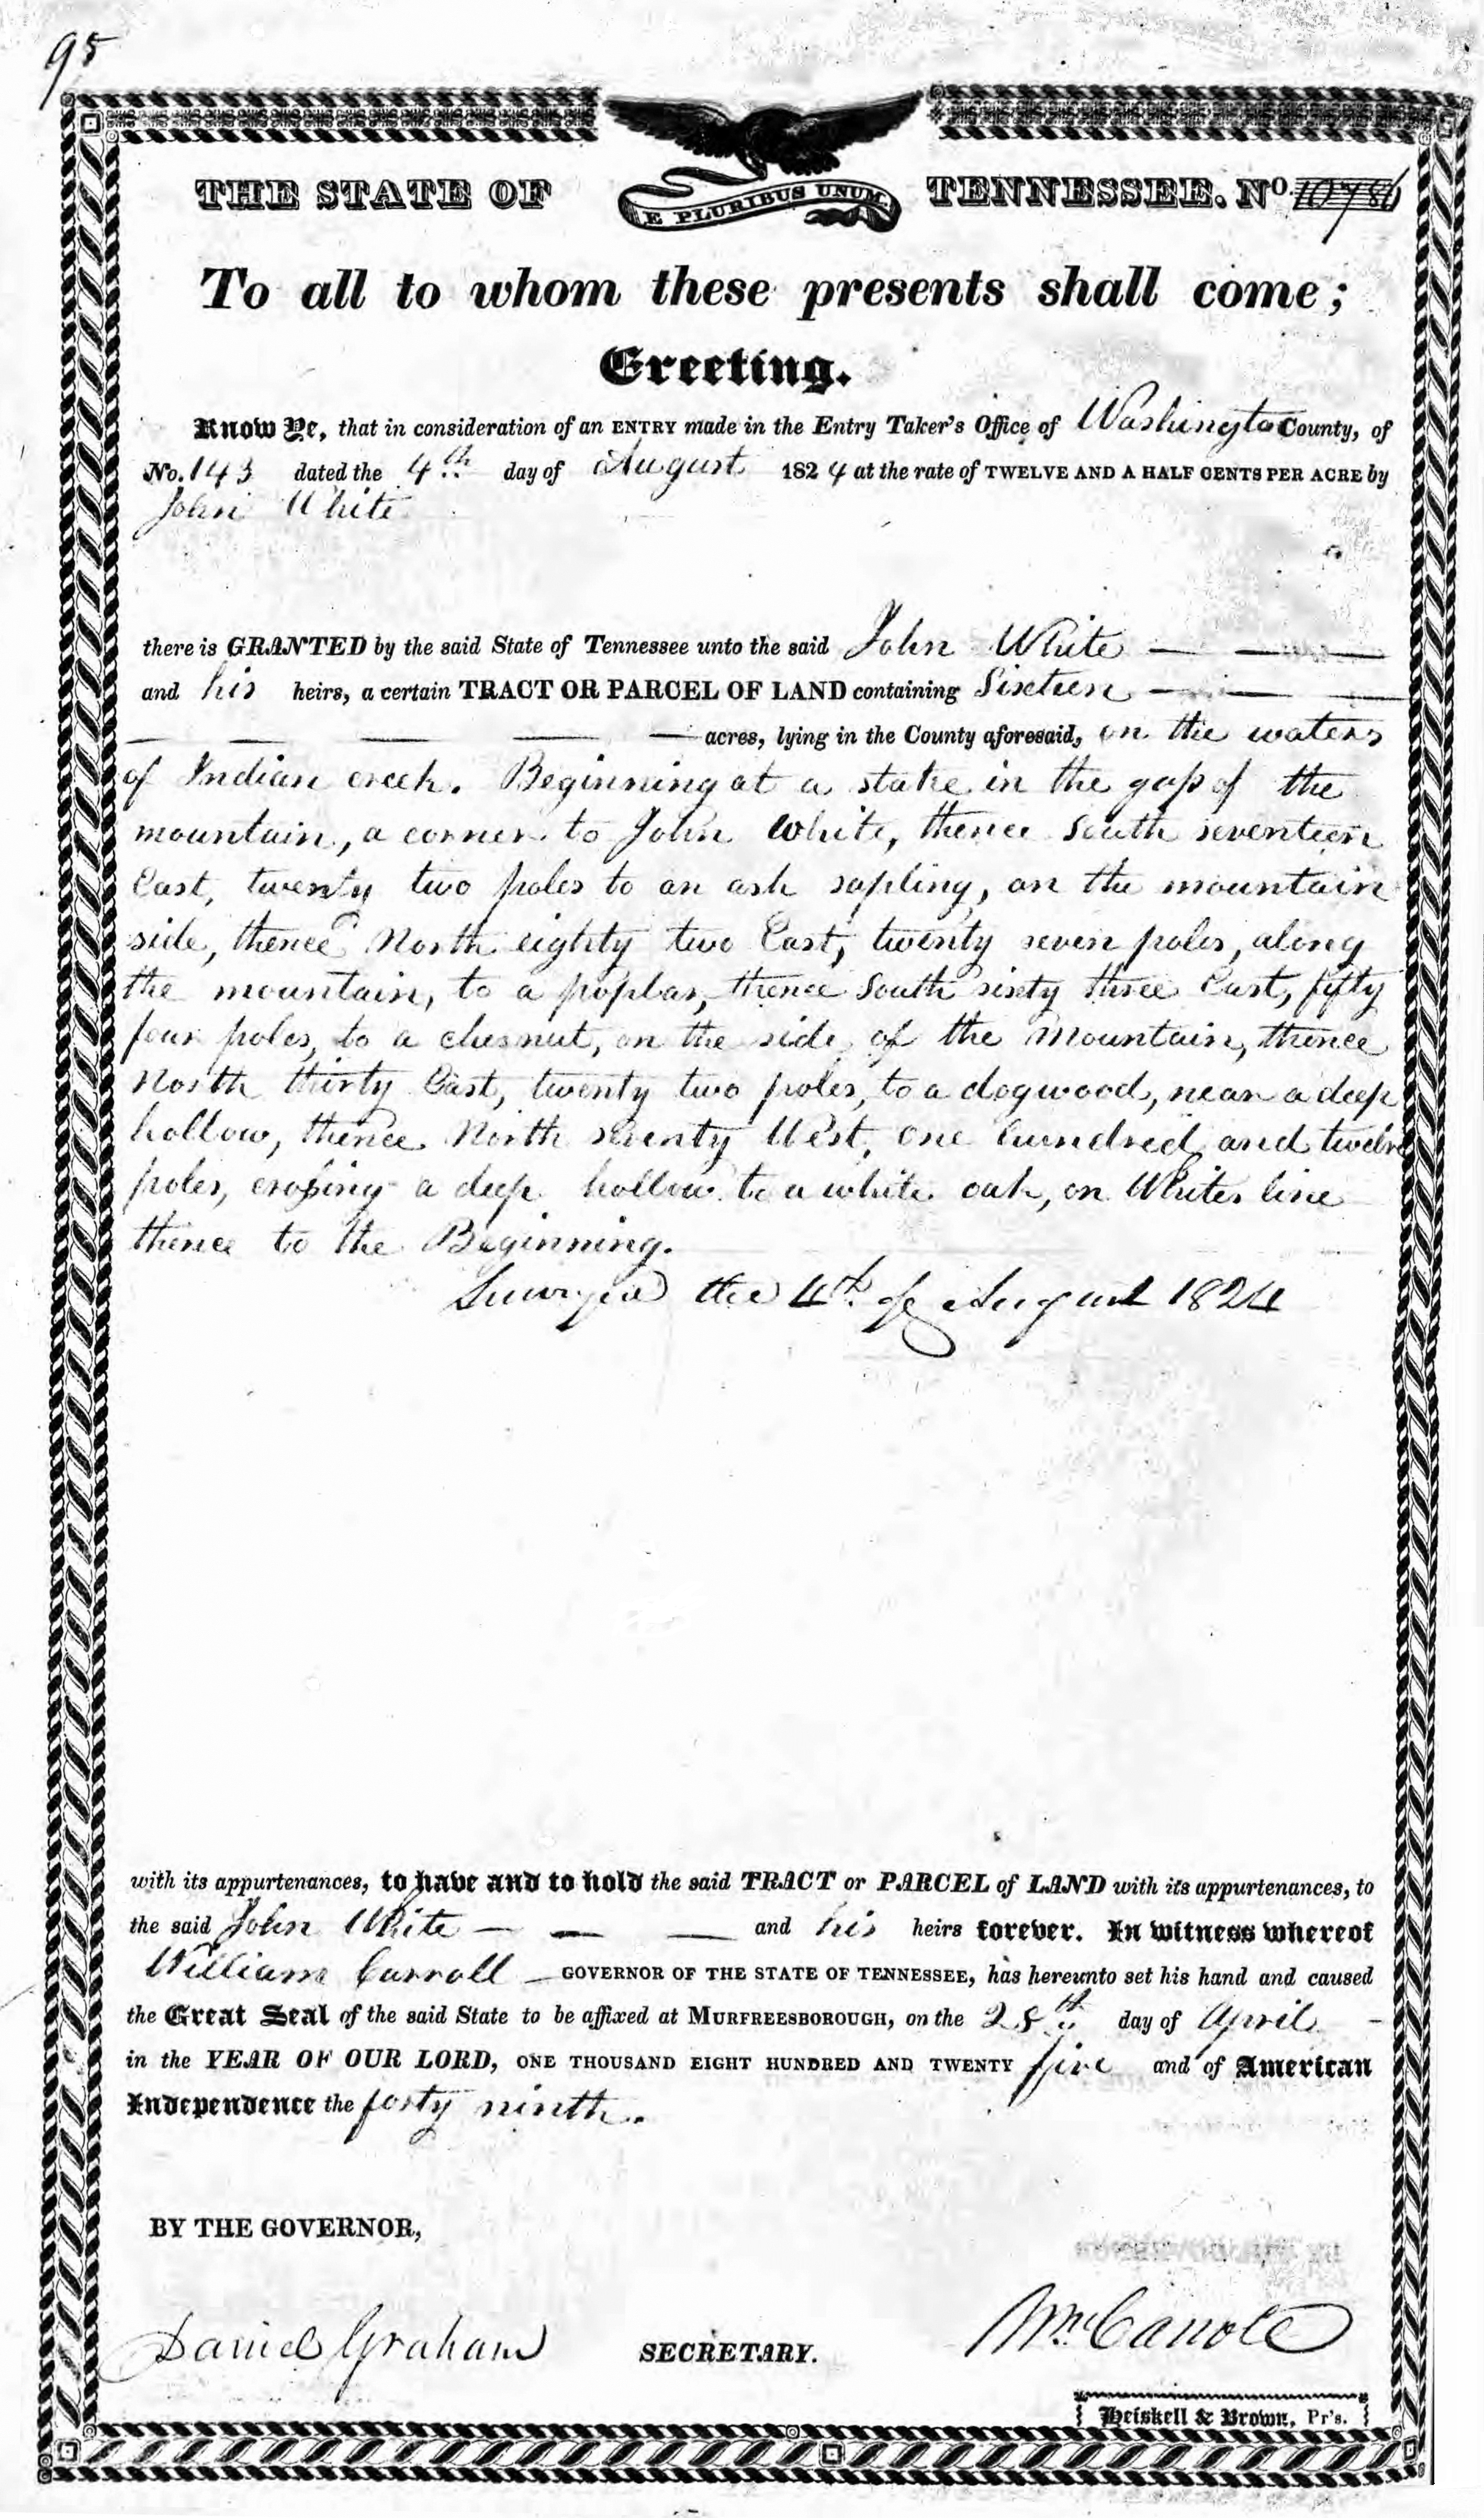 95
THE STATE OF E PLURIBUS UNUM. TENNESSEE. No. 10786
To all to whom these presents shall come;
Greeting.
Know Ye, that in consideration of an ENTRY made in the Entry Taker's Office of Washington County, of
No. 143 dated the 4th day of August 1824 at the rate of TWELVE AND A HALF CENTS PER ACRE by
John White
there is GRANTED by the said State of Tennessee unto the said John White — —
and his heirs, a certain TRACT OR PARCEL OF LAND containing Sixteen — — —
— — — — — acres, lying in the County aforesaid, on the waters
of Indian creek. Beginning at a stake in the gap of the
mountain, a corner to John White, thence South seventeen
East, twenty two poles to an ash sapling, on the mountain
side, thence North eighty two East, twenty seven poles, along
the mountain, to a poplar, thence South sixty three East, fifty
four poles, to a chesnut, on the side of the Mountain, thence
North thirty East, twenty two poles, to a dogwood, near a deep
hollow, thence North seventy West, one hundred and twelve
poles, crossing a deep hollow to a white oak, on Whites line
thence to the Beginning.
Surveyed the 4th of August 1824
with its appurtenances, to have and to hold the said TRACT or PARCEL of LAND with its appurtenances, to
the said John White — — — and his heirs forever. In witness whereof
William Carroll — GOVERNOR OF THE STATE OF TENNESSEE, has hereunto set his hand and caused
the Great Seal of the said State to be affixed at MURFREESBOROUGH, on the 28th day of April —
in the YEAR OF OUR LORD, ONE THOUSAND EIGHT HUNDRED AND TWENTY five and of American
Independence the forty ninth.
BY THE GOVERNOR,
Daniel Graham SECRETARY. Wm. Carroll
Heiskell & Brown, Pr's.